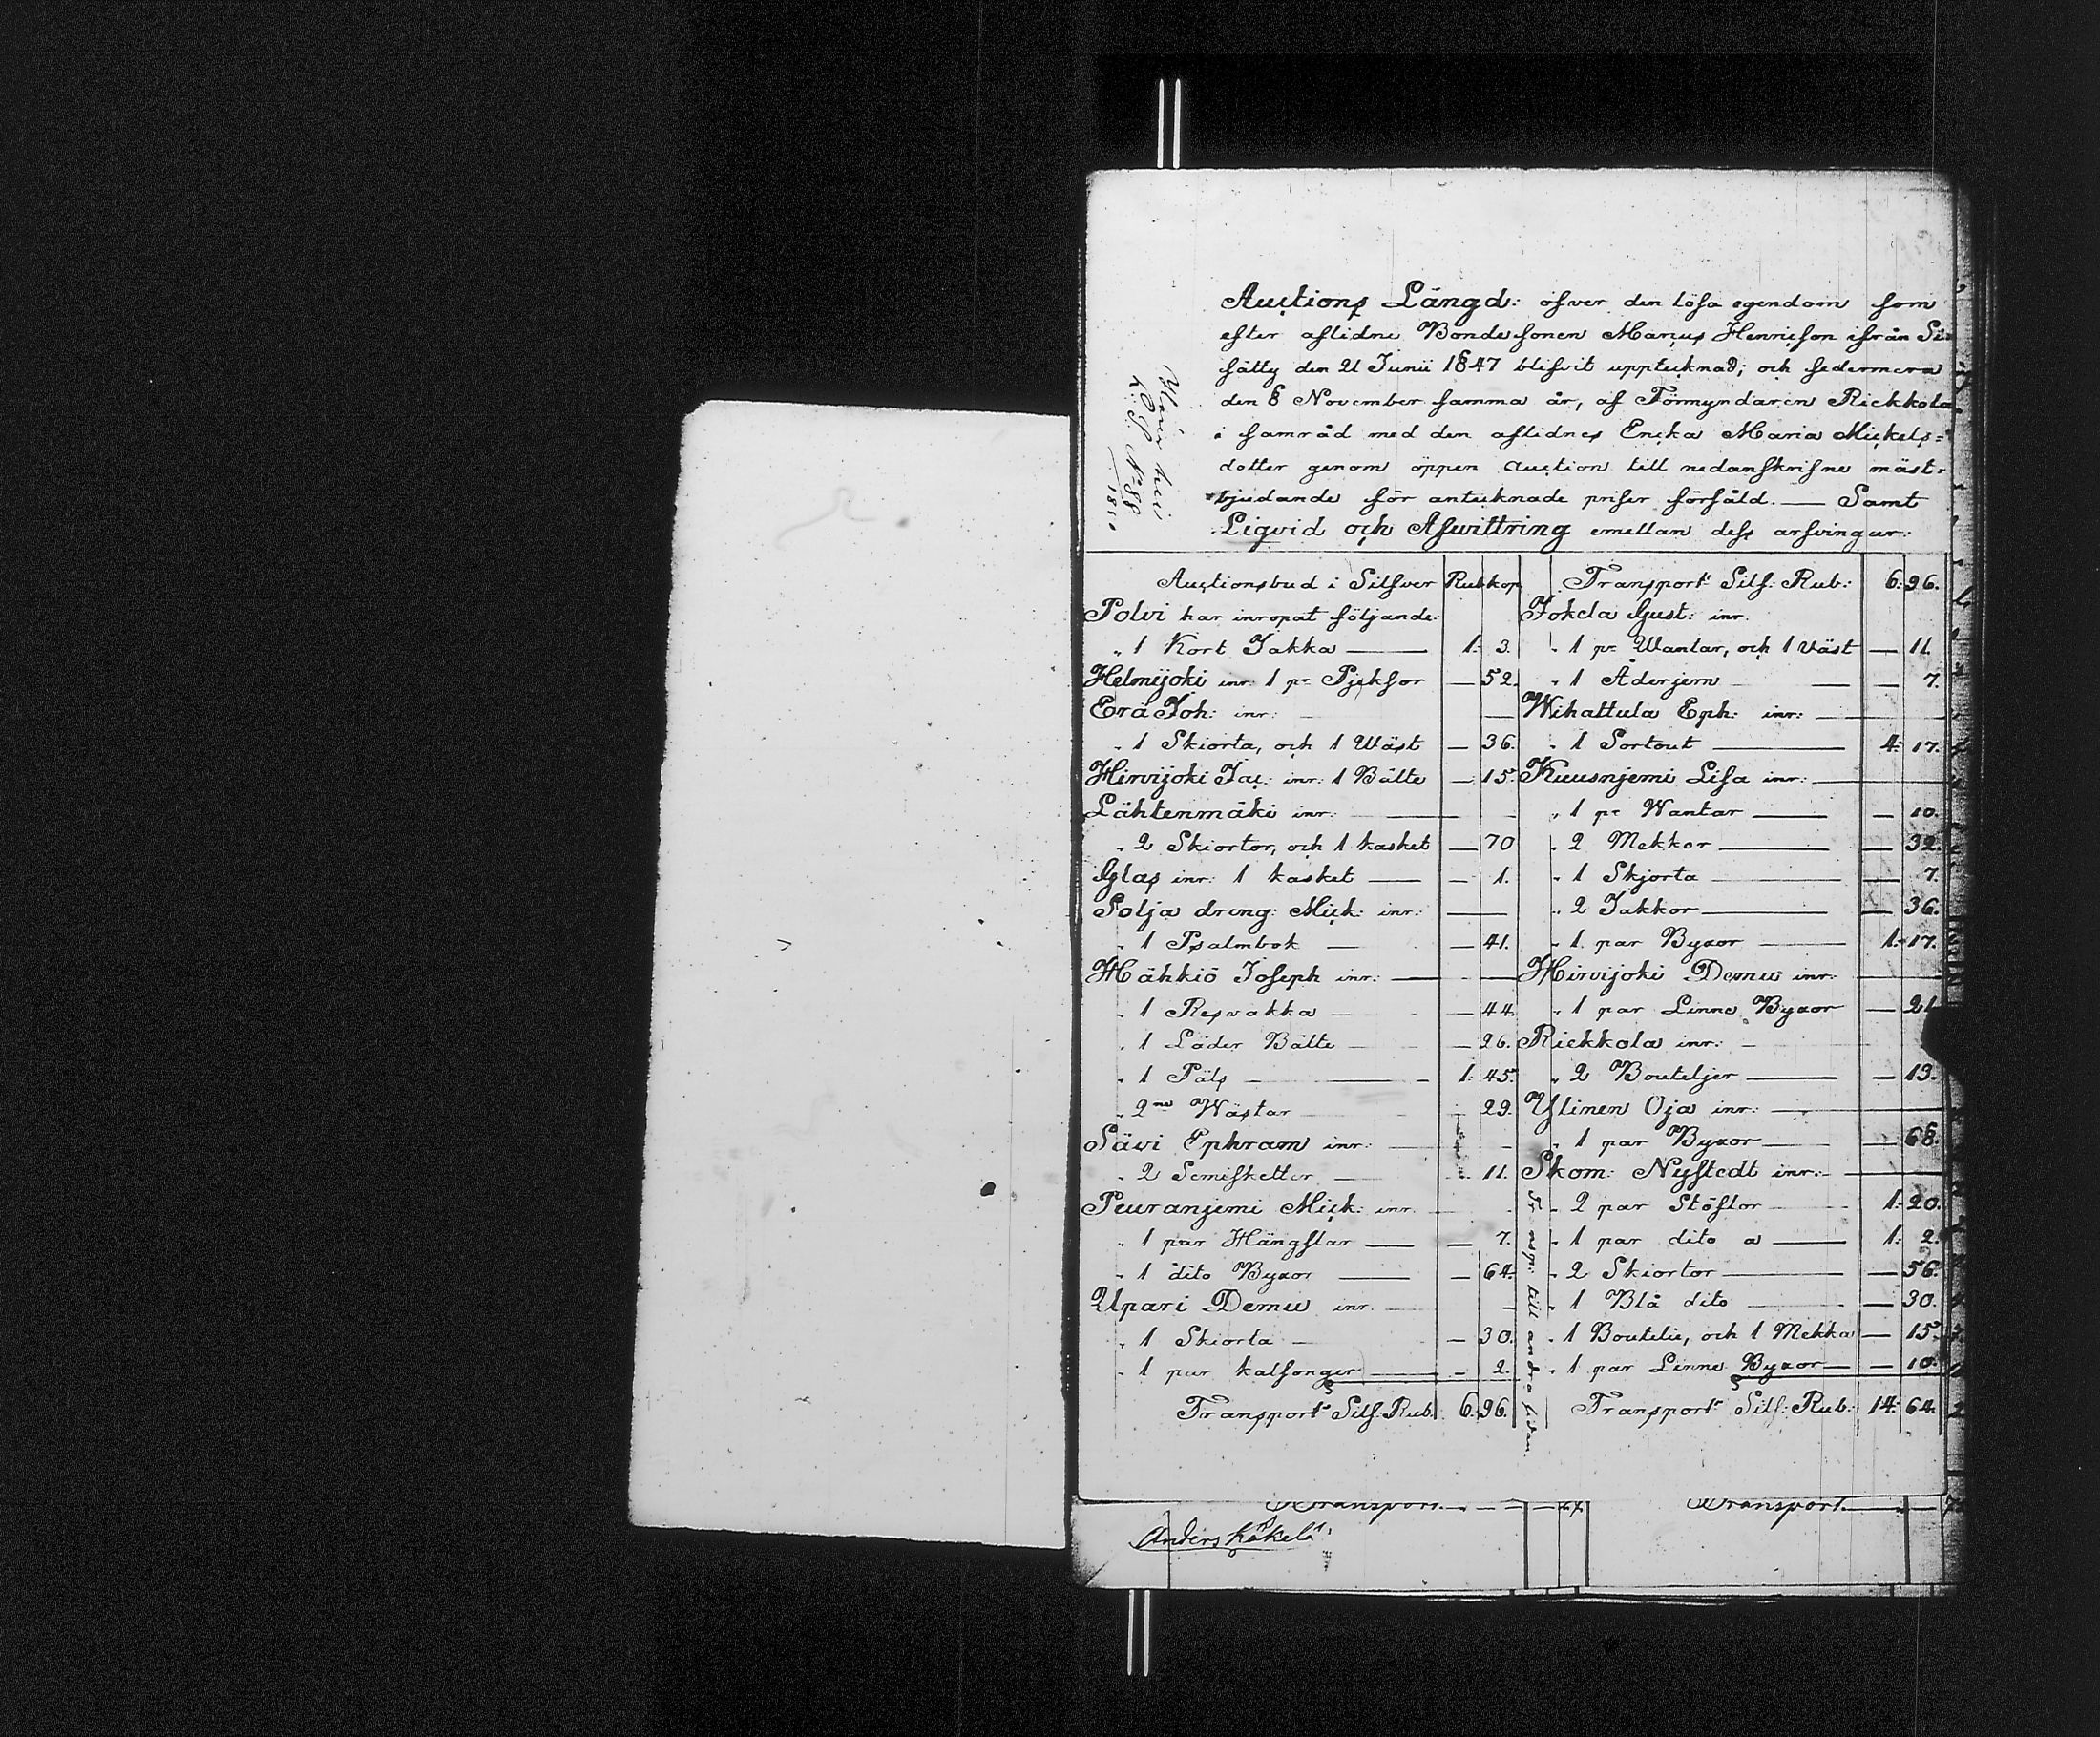 Auctions Längd: öfver den lösa egendom som
efter aflidne Bondesonen Marcus Henricson ifrån
sätty den 21 Junii 1847 blifvit upptecknad; och sedermera
den 8 November samma år, af Förmyndaren Riekkola
i samråd med den aflidnes Encka Maria Mickels=
dotter genom öppen auction till nedanskrifne mäst-
bjudande för antecknade priser försåld. — Samt
Liqvid och Afwittring emellan dess arfvingar:
1850
Auctionsbud i Silfver Rub kop
Polvi har inropat följande:
" 1 Kort Jakka — 1: 3.
Helmijoki inr: 1 pr Pjeksor — 52.
Erä Joh: inr:
" 1 Skiorta, och 1 Wäst — 36.
Hirvijoki Jac: inr: 1 Bälte — 15.
Lähtenmäki inr:
" 2 Skiortor, och 1 kasket — 70
Glas inr: 1 kasket — 1.
Solja dreng: Mick: inr:
" 1 Psalmbok — 41.
Hähkiö Joseph inr:
" 1 Resvakka — 44.
" 1 Läder Bälte — 26.
" 1 Päls — 1: 45.
" 2ne Wästar 29.
Sävi Ephram inr:
" 2 Semisketter 11.
Peuranjemi Mick: inr.
" 1 par Hängslar — 7.
" 1 dito Byxor — 64.
Upari Demu inr.
" 1 Skiorta — 30.
" 1 par kalsonger — 2.
Transport Silf: Rub. 6. 96.
Transport Silf: Rub: 6: 96.
Jokela Gust: inr.
" 1 pr Wantar, och 1 Väst — 11.
" 1 Åderjern — 7.
Wihattula Eph: inr:
" 1 Sortout — 4: 17.
Kuusnjemi Lisa inr:
" 1 pr Wantar — 10.
" 2 Mekkor — 32.
" 1 Skjorta — 7.
" 2 Jakkor — 36.
" 1 par Byxor — 1: 17.
Hirvijoki Demu inr:
" 1 par Linne Byxor — 21
Riekkola inr:
" 2 Bouteljer — 13.
Ylinen Oja inr:
" 1 par Byxor — 68.
Skom: Nystedt inr:
" 2 par Stöflor 1: 20.
" 1 par dito a — 1: 2.
" 2 Skiortor — 56.
" 1 Blå dito — 30.
" 1 Boutelie, och 1 Mekka — 15.
" 1 par Linne Byxor — 10.
Transport Silf: Rub: 14: 64.
Transp: till andra sidan
Transport
Transport
Anders